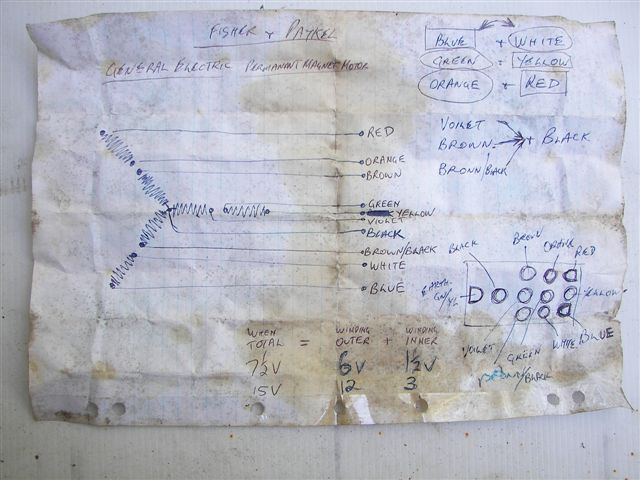 FISHER & PAYKEL
GENERAL ELECTRIC PERMANANT MAGNET MOTOR
BLUE + WHITE
GREEN + YELLOW
ORANGE + RED
VOILET
BROWN + BLACK
BROWN/BLACK
RED
ORANGE
BROWN
GREEN
YELLOW
VIOLET
BLACK
BROWN/BLACK
WHITE
BLUE
BLACK
BROWN
ORANGE
RED
EARTH
GN/YL
YELLOW
VOILET
GREEN
WHITE
BLUE
BROWN/BLACK
WHEN WINDING WINDING
TOTAL = OUTER + INNER
7½V 6V 1½V
15V 12 3